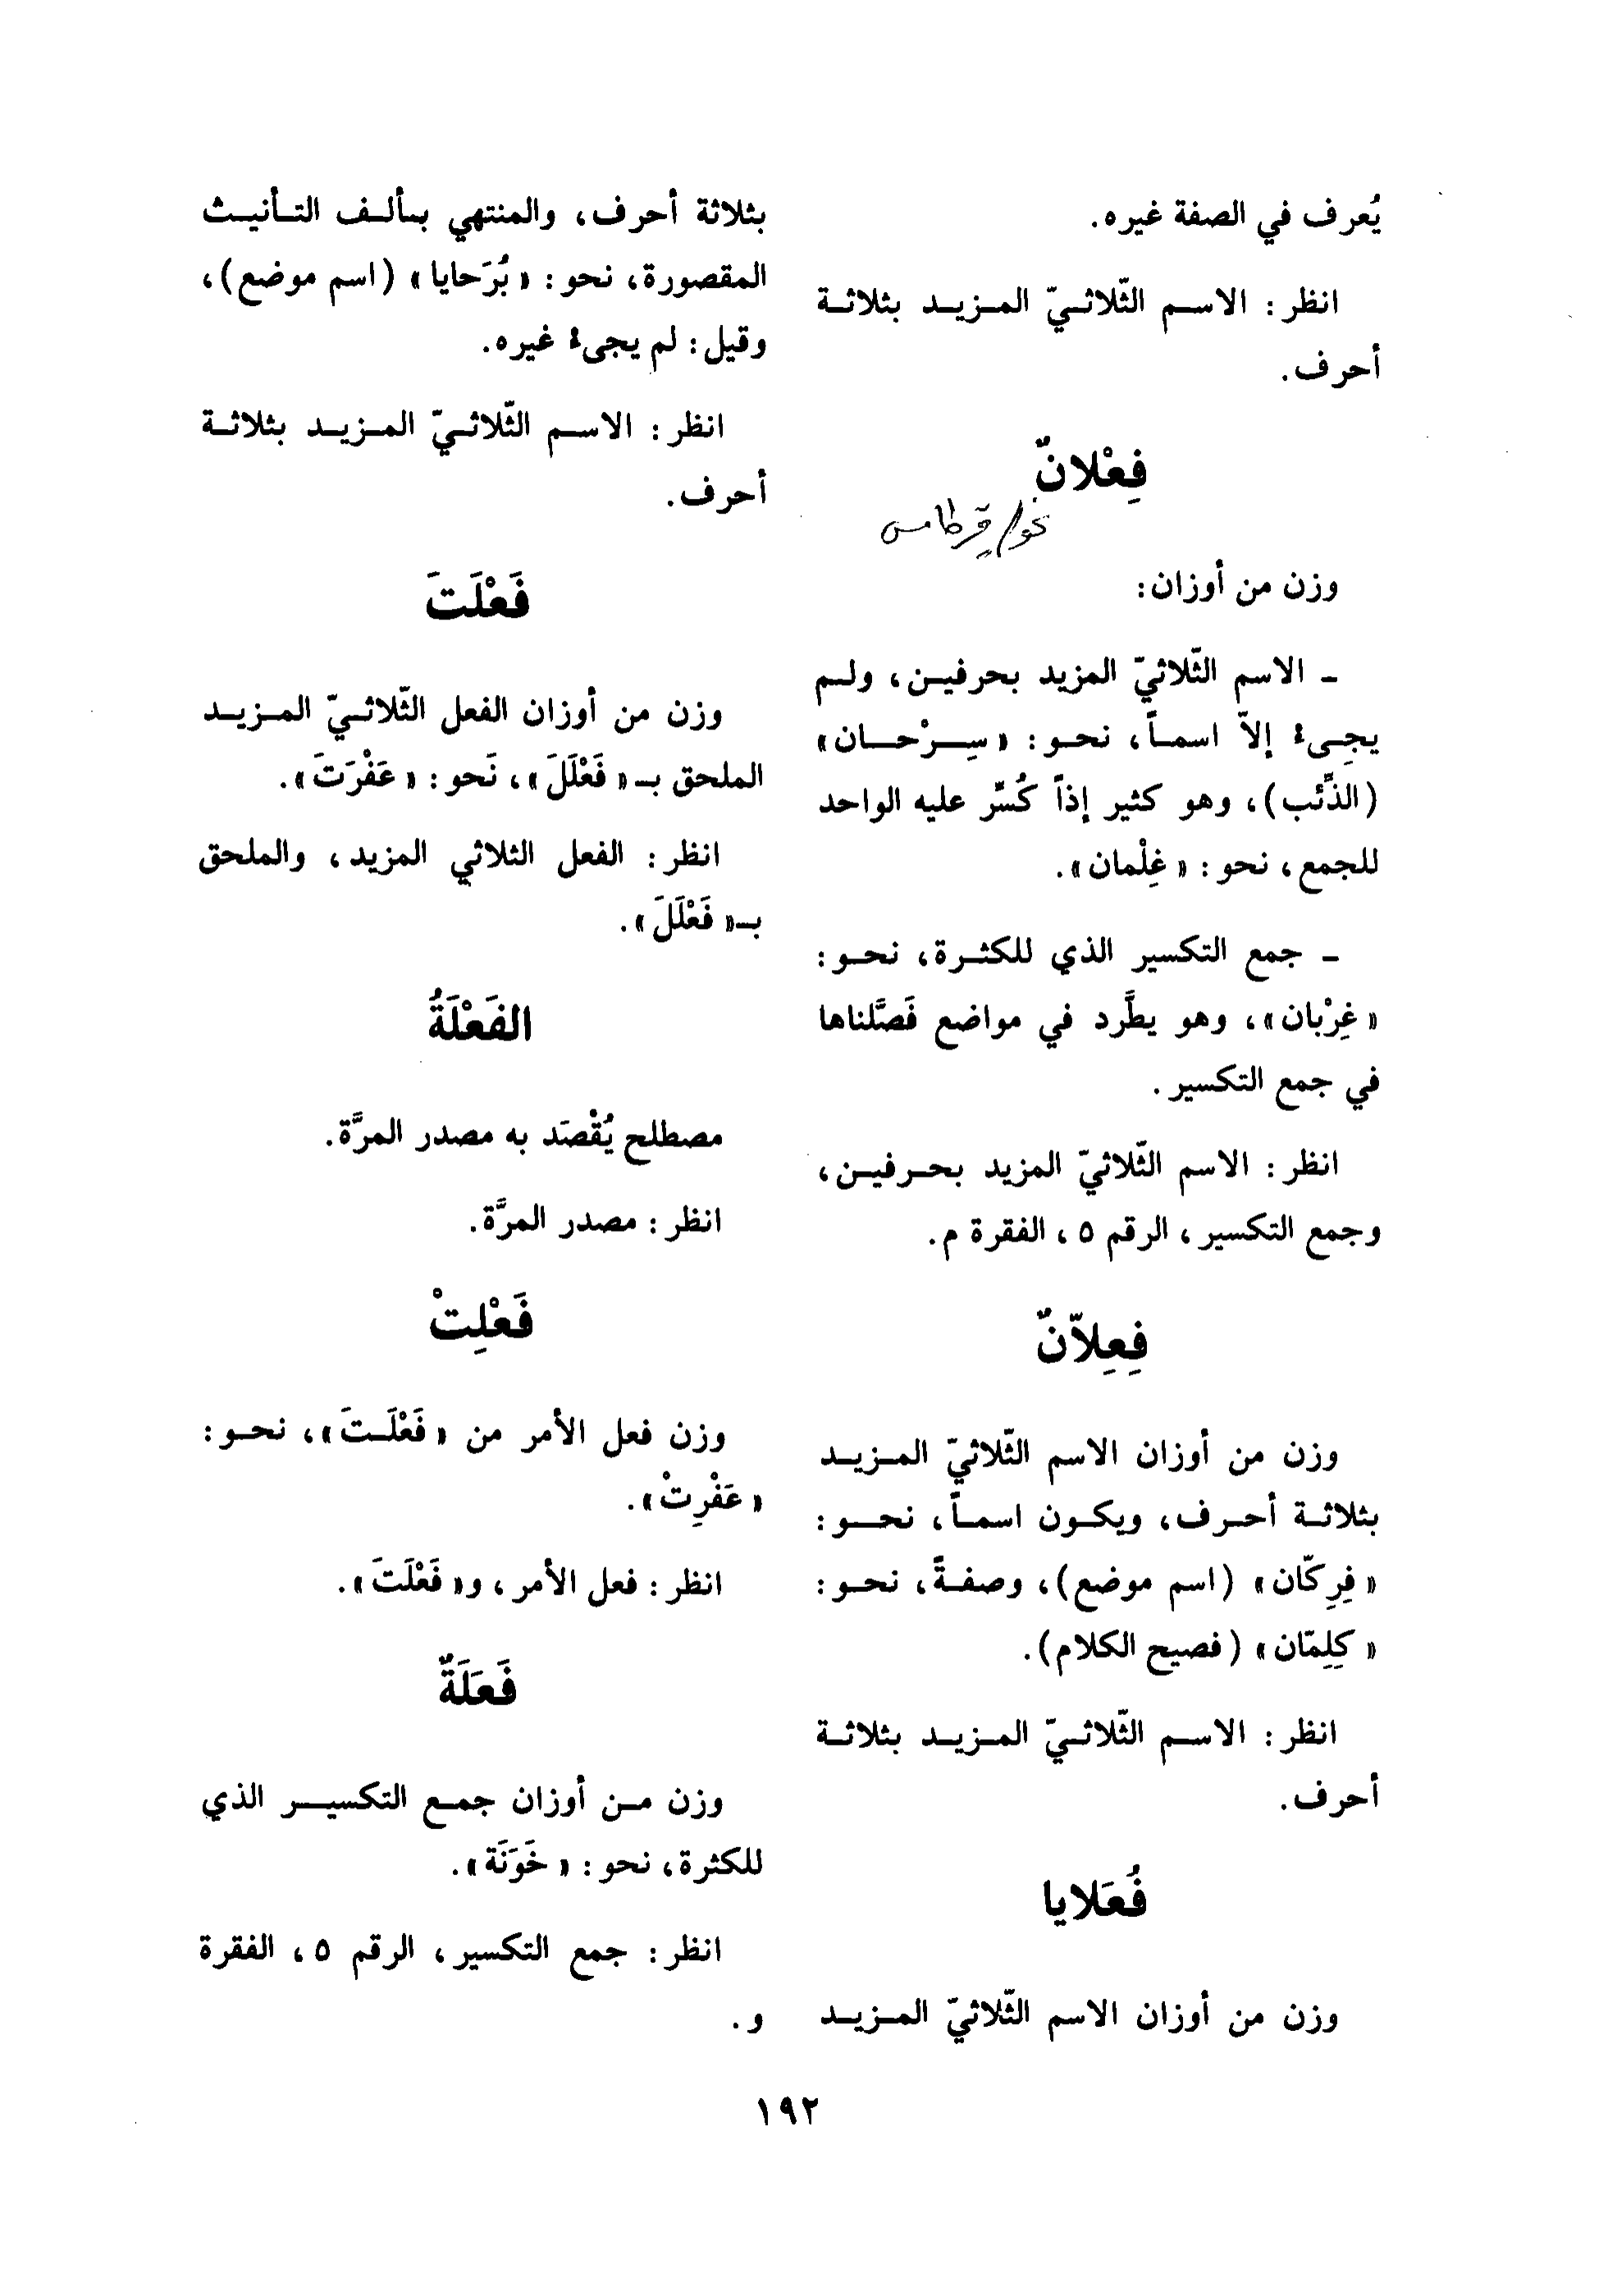 يُعرف في الصفة غيره.
انظر: الاسم الثّلاثيّ المزيد بثلاثة
أحرف.
فِعْلانٌ
وزن من أوزان:
ـ الاسم الثّلاثيّ المزيد بحرفين، ولم
يجىء إلاّ اسماً، نحو: «سِرْحان»
(الذِّئب)، وهو كثير إذاً كُسِّر عليه الواحد
للجمع، نحو: «غِلْمان».
ـ جمع التكسير الذي للكثرة، نحو:
«غِرْبان»، وهو يطَّرد في مواضع فَصَّلناها
في جمع التكسير.
انظر: الاسم الثّلاثيّ المزيد بحرفين،
وجمع التكسير، الرقم ٥، الفقرة م.
فِعِلاّنٌ
وزن من أوزان الاسم الثّلاثيّ المزيد
بثلاثة أحرف، ويكون اسماً، نحو:
«فِرِكّان» (اسم موضع)، وصفةً، نحو:
«كِلِمّان» (فصيح الكلام).
انظر: الاسم الثّلاثيّ المزيد بثلاثة
أحرف.
فُعَلايا
وزن من أوزان الاسم الثّلاثيّ المزيد
بثلاثة أحرف، والمنتهي بألف التأنيث
المقصورة، نحو: «بُرَحايا» (اسم موضع)،
وقيل: لم يجىء غيره.
انظر: الاسم الثّلاثيّ المزيد بثلاثة
أحرف.
فَعْلَتَ
وزن من أوزان الفعل الثّلاثيّ المزيد
الملحق بـ«فَعْلَلَ»، نَحو: «عَفْرَتَ».
انظر: الفعل الثلاثي المزيد، والملحق
بـ«فَعْلَلَ».
الفَعْلَةُ
مصطلح يُقْصَد به مصدر المرَّة.
انظر: مصدر المرَّة.
فَعْلِتْ
وزن فعل الأمر من «فَعْلَتَ»، نحو:
«عَفْرِتْ».
انظر: فعل الأمر، و«فَعْلَتَ».
فَعَلَةٌ
وزن من أوزان جمع التكسير الذي
للكثرة، نحو: «خَوَنَة».
انظر: جمع التكسير، الرقم ٥، الفقرة
و.
١٩٢